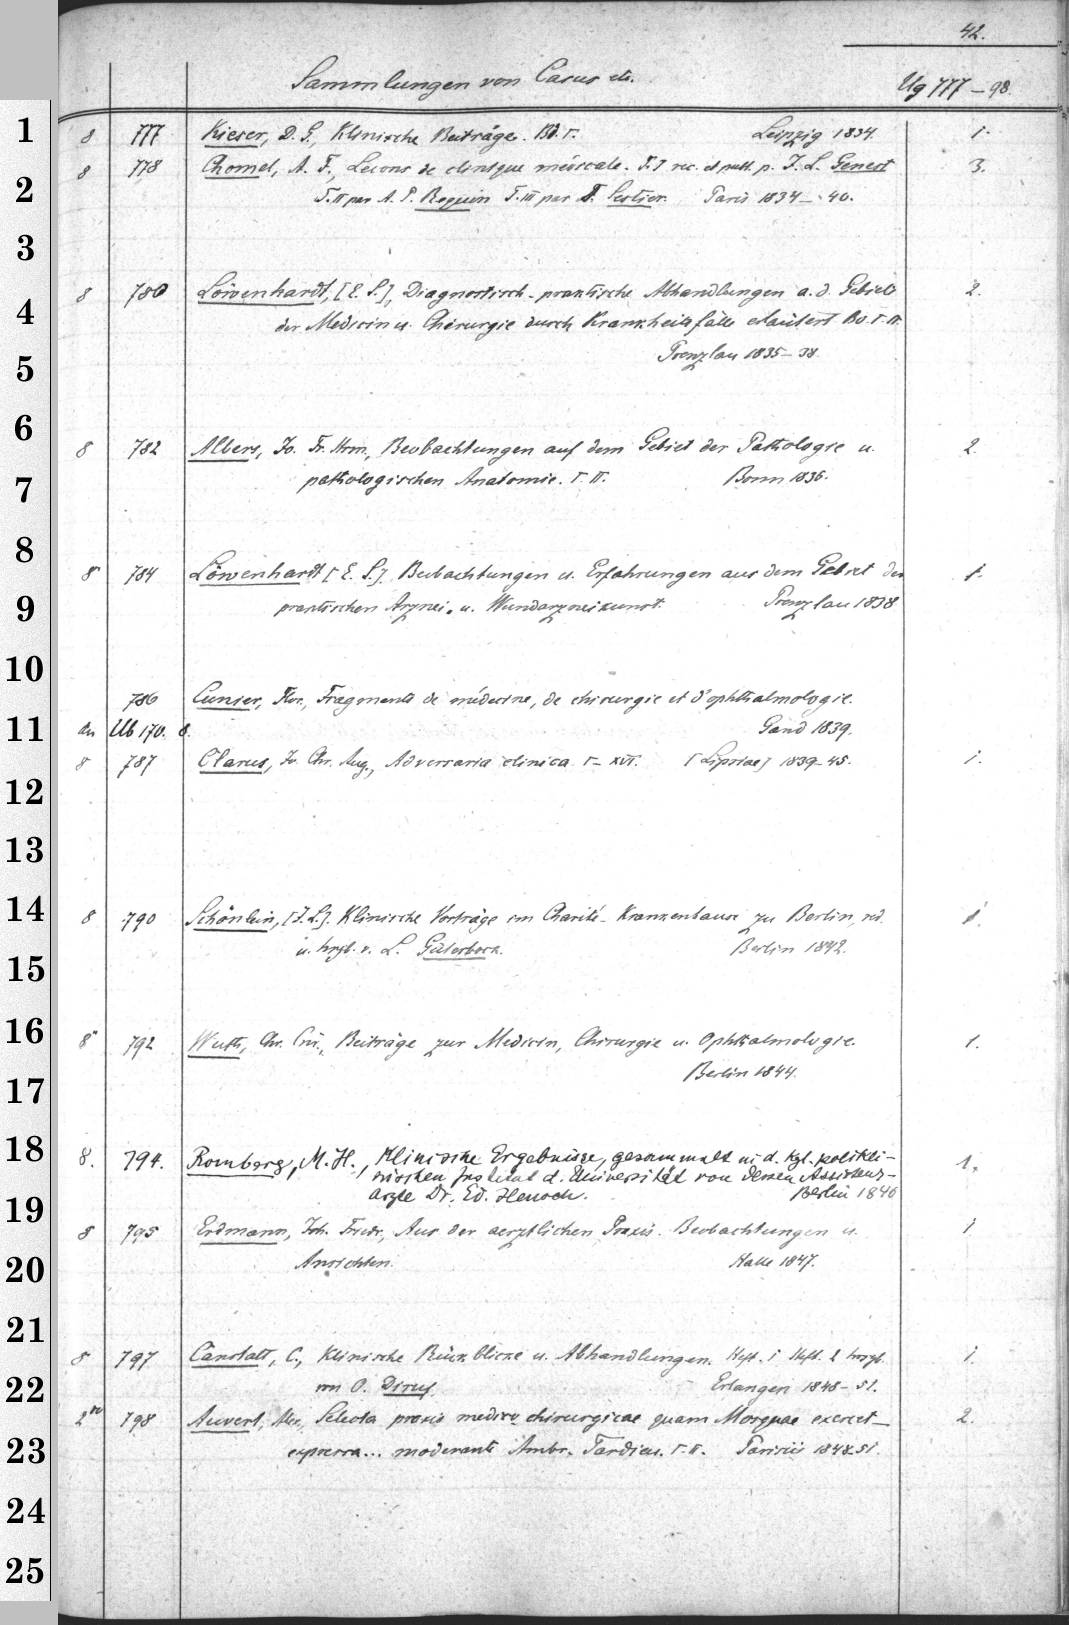 42.
Sammlungen von Casus etc. Ug 777-98.
1
8 777 Kieser, D. G., Klinische Beiträge. Bd. I. Leipzig 1834. 1.
2
8 778 Chomel, A. F., Leçons de clinique médicale. T. I rec. et publ. p. J. L. Genest 3.
T. II par A. P. Requin T. III par Sestier. Paris 1834-40.
3
4
8 780 Löwenhardt, [E. S.], Diagnostisch-praktische Abhandlungen a. d. Gebiete 2.
der Medicin u. Chirurgie durch Krankheitsfälle erläutert Bd. I. II.
5
Prenzlau 1835-38.
6
8 782 Albers, Jo. Fr. Hrm., Beobachtungen auf dem Gebiet der Pathologie u. 2.
7
pathologischen Anatomie. I. II. Bonn 1836.
8
8 784 Löwenhardt [E. S.] Beobachtungen u. Erfahrungen aus dem Gebiet der 1.
9
praktischen Arznei- u. Wundarzneikunst. Prenzlau 1838
10
786 Cunier, Flor., Fragments de médecine, de chirurgie et d'ophthalmologie.
11
an Ub 170. 8. Gand 1839.
8 787 Clarus, Jo. Chr. Aug., Adversaria clinica I-XVI. [Lipsiae] 1839-45. 1.
12
13
14
8 790 Schönlein, [J. L.]. Klinische Vorträge im Charité-Krankenhause zu Berlin, red. 1.
u. hrsgb. v. L. Güterbock. Berlin 1842.
15
16
8 792 Wutzer, Chr. Beiträge zur Medicin, Chirurgie u. Ophthalmologie. 1.
Berlin 1844.
17
18
8. 794. Romberg, M. H., Klinische Ergebnisse, gesammelt in d. kgl. polikli- 1.
nischen Institut d. Universität von dessen Assistenz-
19
arzte Dr. Ed. Henoch. Berlin 1846
8 795 Erdmann, Joh. Friedr., Aus der aerztlichen Praxis. Beobachtungen u. 1
20
Ansichten. Halle 1847.
21
8 797 Canstatt, C., Klinische Rückblicke u. Abhandlungen. Heft. 1 Heft. 2 hrsgb. 1.
22
von O. Diruf. Erlangen 1848-51.
2° 798 Auvert, Alex., Selecta praxis medico chirurgicae quam Mosquae exercet 2.
23
expressa... moderante Ambr. Tardieu. I. II. Parisiis 1848-51.
24
25